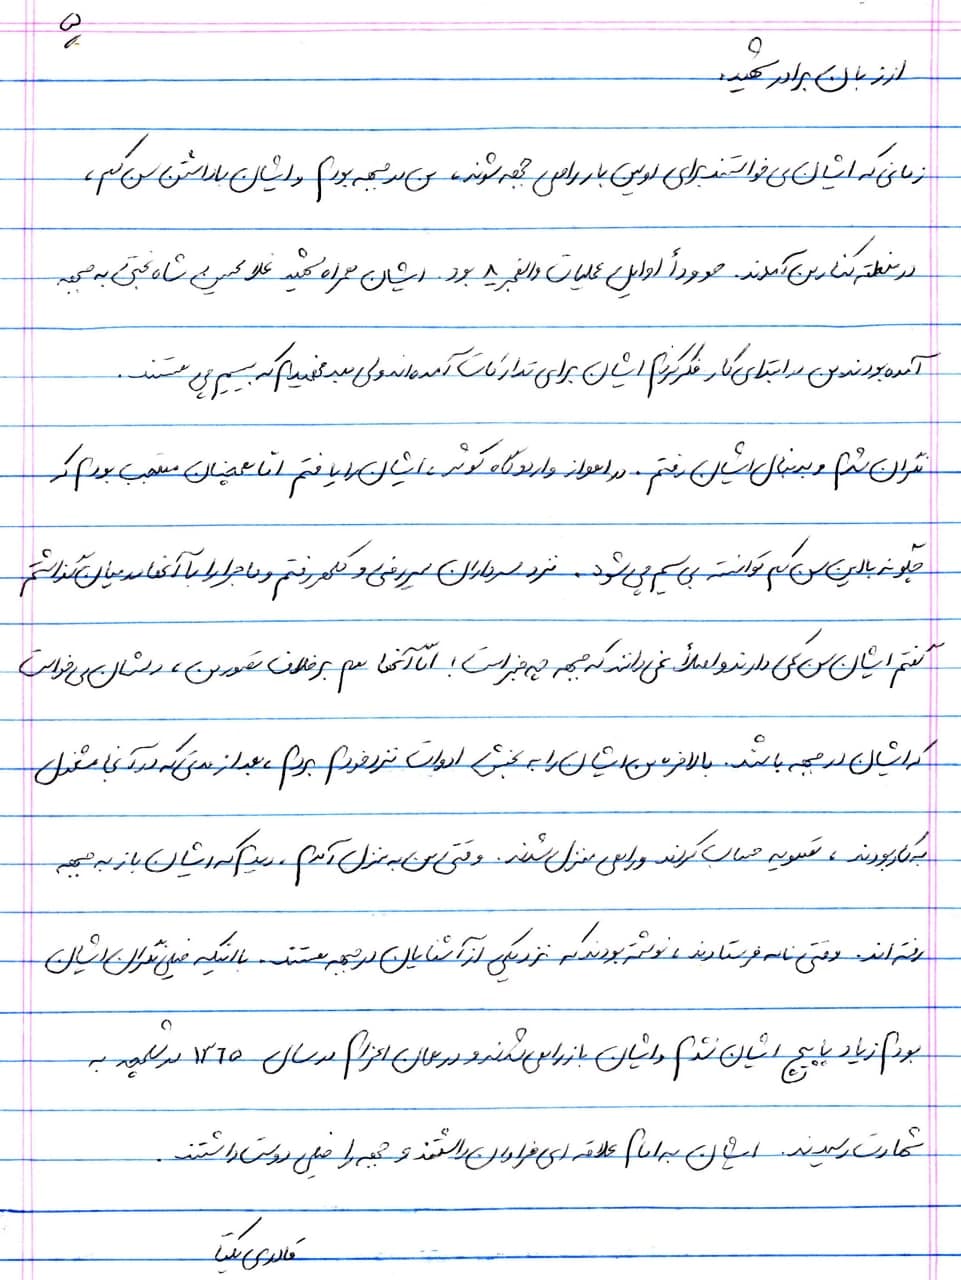 از زبان برادر شهید:
زمانی که ایشان می خواستند برای اولین بار راهی جبهه شوند، من در جبهه بودم و ایشان با داشتن سن کم،
در منطقه کنار من آمدند. حدوداً اوایل عملیات والفجر ۸ بود. ایشان همراه شهید غلامحسین شاه نجفی به جبهه
آمده بودند من در ابتدای کار فکر کردم ایشان برای تدارکات آمده اند ولی بعد فهمیدم که بیسیم چی هستند.
نگران شدم و بدنبال ایشان رفتم. در اهواز و اردوگاه کوثر، ایشان را یافتم اما همچنان متعجب بودم که
چگونه با این سن کم توانسته بی سیم چی شود. نزد سرداران میررضی و کلهر رفتم و ماجرا را با آنها در میان گذاشتم
گفتم ایشان سن کمی دارند و اصلاً نمی دانند که جبهه چه جبر است! امّا آنها هم بر خلاف تصور من، دلشان می خواست
که ایشان در جبهه باشند. بالاخره من ایشان را به بخش ادوات نزد خودم بردم، بعد از مدتی که در آنجا مشغول
به کار بودند، تسویه حساب کردند و راهی منزل شدند. وقتی من به منزل آمدم، دیدم که ایشان باز به جبهه
رفته اند. وقتی نامه فرستادند، نوشته بودند که نزد یکی از آشنایان در جبهه هستند. با اینکه خیلی نگران ایشان
بودم زیاد پاپیچ ایشان نشدم و ایشان باز راهی شدند و در همان اعزام در سال ۱۳۶۵ در شلمچه به
شهادت رسیدند. ایشان به امام علاقه ای فراوان داشتند و جبهه را خیلی دوست داشتند.
قادری یکتا